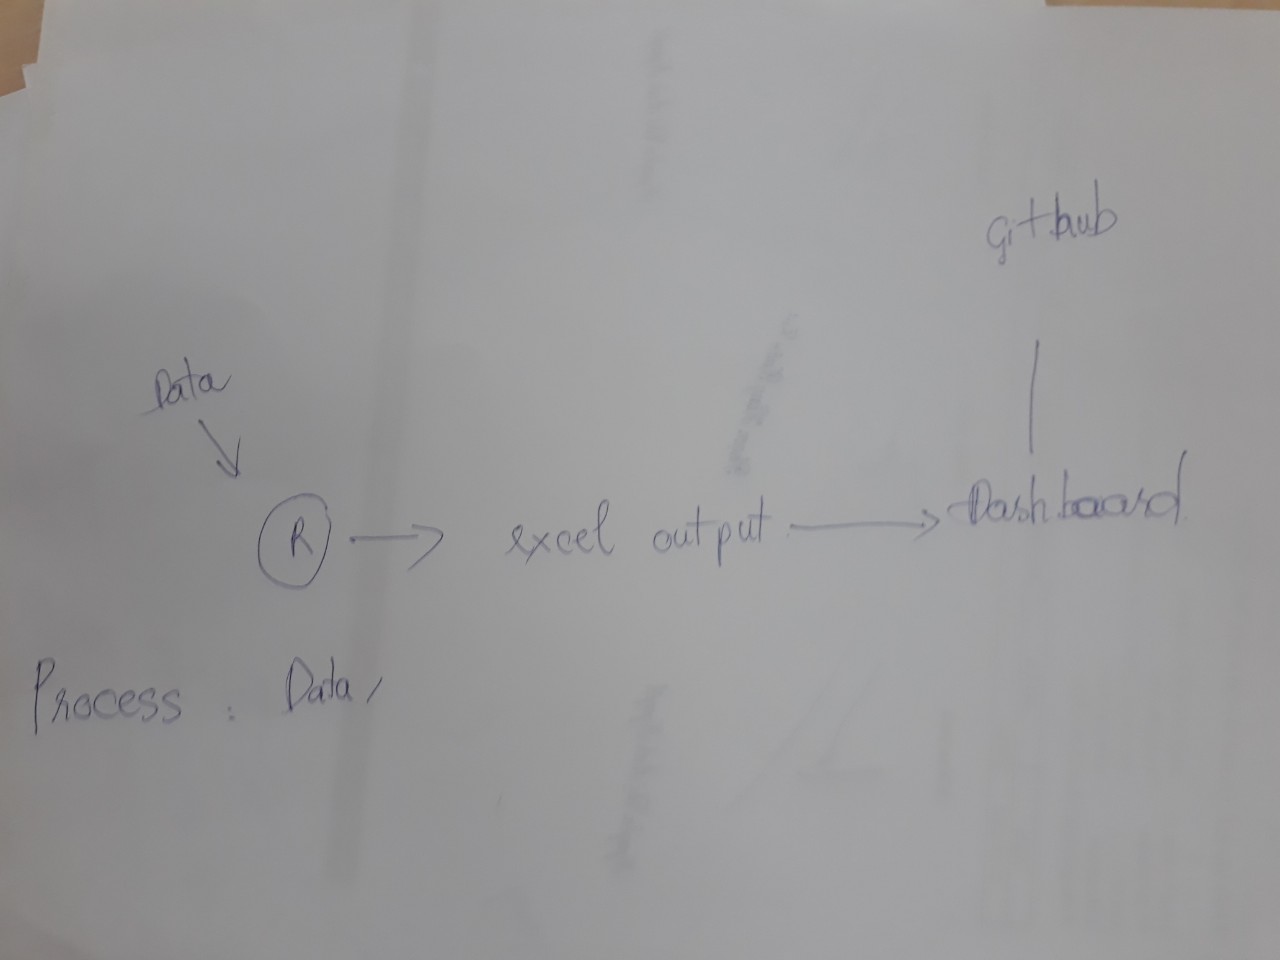 Github
Data
R excel output Dashboard
Process : Data,